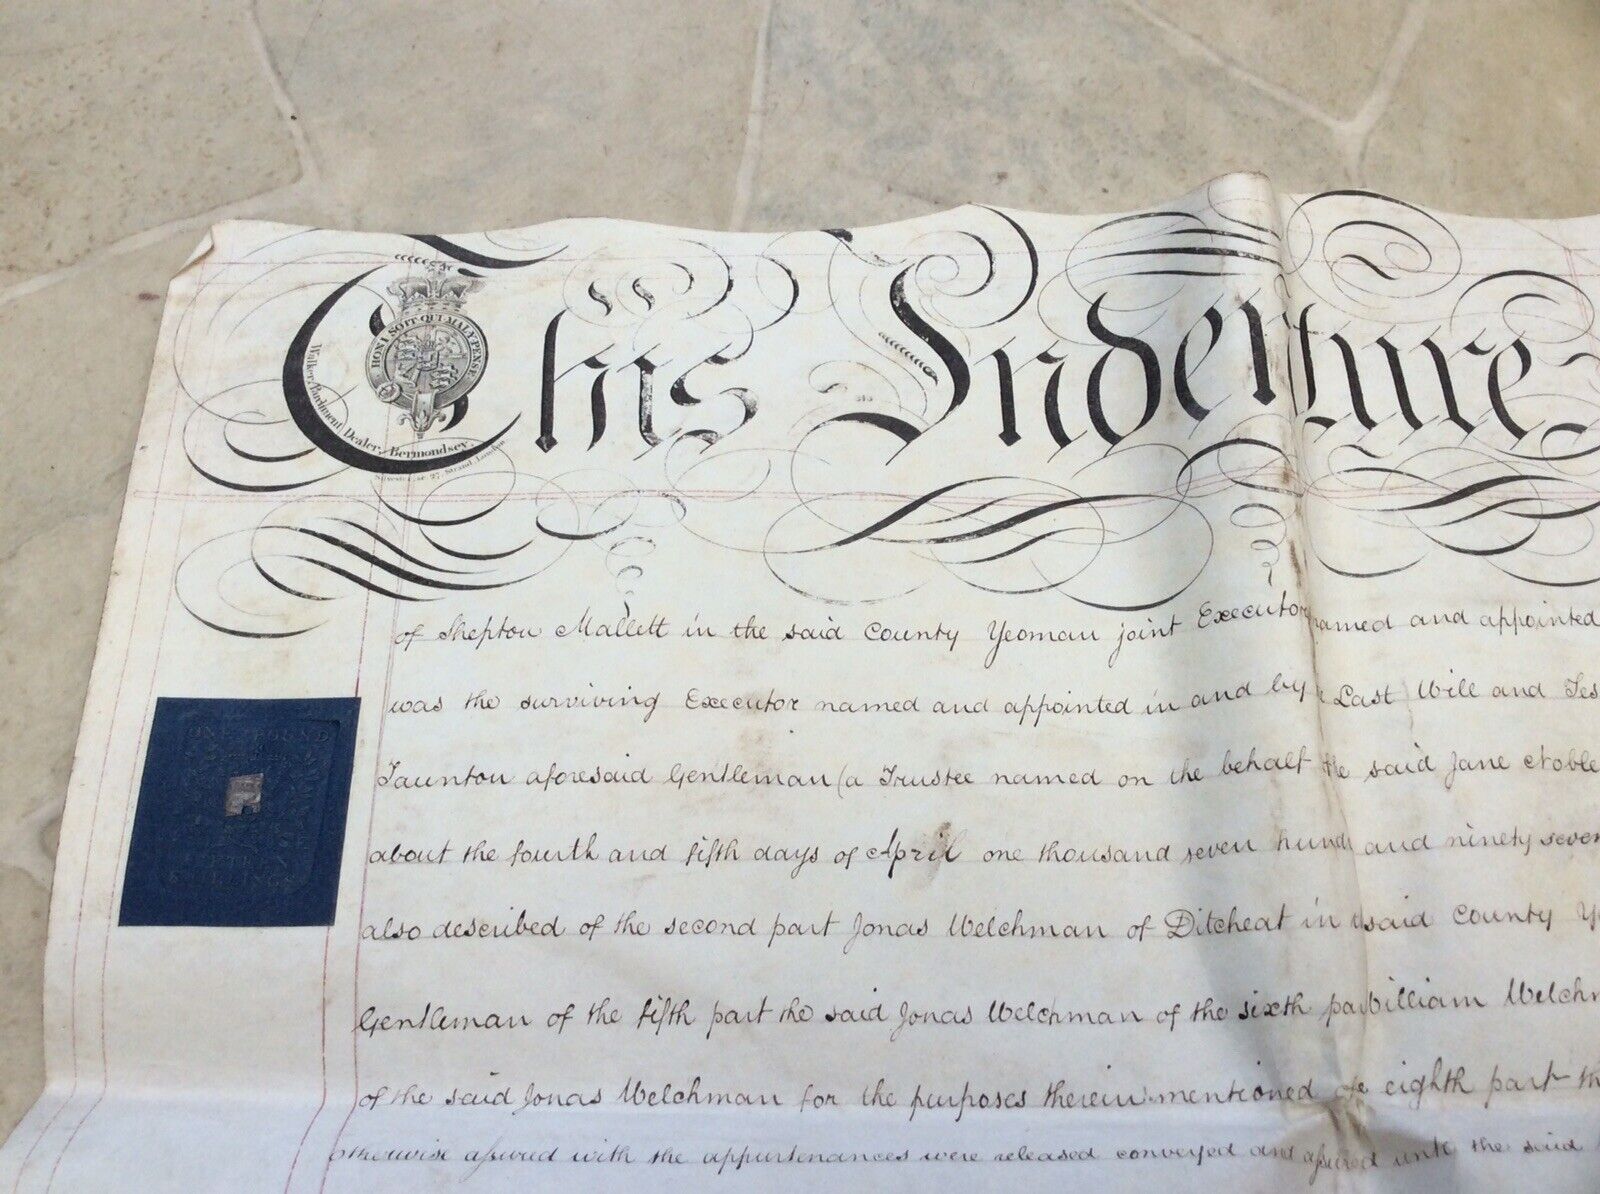 This Indenture
HONI SOIT QUI MAL Y PENSE
Walker, Parchment Dealer, Bermondsey.
27 Strand London
of Shepton Mallett in the said County Yeoman joint Executor named and appointed
was the surviving Executor named and appointed in and by Last Will and Tes
Taunton aforesaid Gentleman (a Trustee named on the behalf the said Jane Noble
about the fourth and fifth days of April one thousand seven hund and ninety seven
also described of the second part Jonas Welchman of Ditcheat in said County Ye
Gentleman of the fifth part the said Jonas Welchman of the sixth pa William Welchm
of the said Jonas Welchman for the purposes therein mentioned of eighth part th
otherwise assured with the appurtenances were released conveyed and assured unto the said
ONE POUND
SHILLINGS